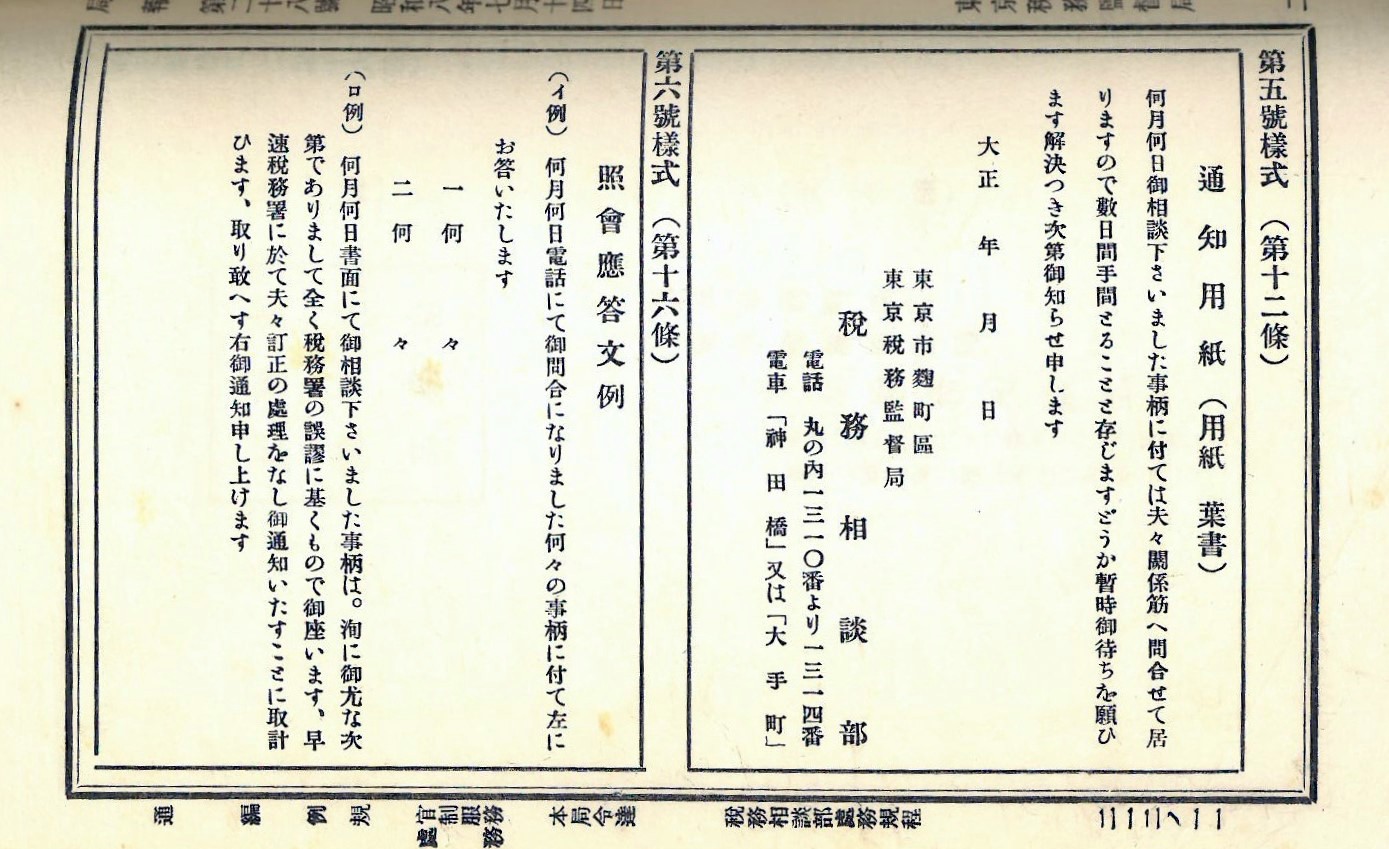 第五號樣式　（第十二條）
通知用紙（用紙　葉書）
何月何日御相談下さいました事柄に付ては夫々關係筋へ問合せて居
りますので數日間手間とることと存じますどうか暫時御待ちを願ひ
ます解決つき次第御知らせ申します
大正　年　月　日
東京市麴町區
東京稅務監督局
稅務相談部
電話　丸の內一三一〇番より一三一四番
電車　「神田橋」又は「大手町」
第六號樣式　（第十六條）
照會應答文例
（イ例）　何月何日電話にて御問合になりました何々の事柄に付て左に
お答いたします
一　何　々
二　何　々
（ロ例）　何月何日書面にて御相談下さいました事柄は。洵に御尤な次
第でありまして全く稅務署の誤謬に基くもので御座います、早
速稅務署に於て夫々訂正の處理をなし御通知いたすことに取計
ひます、取り敢へす右御通知申し上けます
通　編　例　規
官制服務
處務
本局令達
稅務相談部處務規程